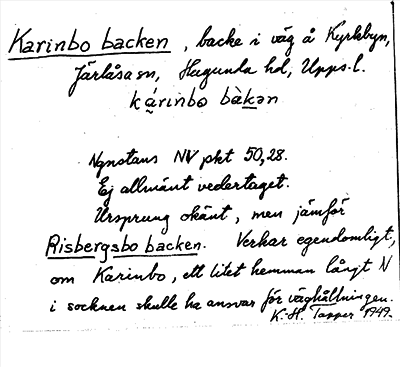 Karinbo backen, backe i väg å Kyrkbyn,
Järlåsa sn, Hagunda hd, Upps. l.
kárinbo bàkən
Ngnstans NV pkt 50,28.
Ej allmänt vedertaget.
Ursprung okänt, men jämför
Risbergsbo backen. Verkar egendomligt,
om Karinbo, ett litet hemman långt N
i socknen skulle ha ansvar för väghållningen.
K.-H. Tapper 1949.